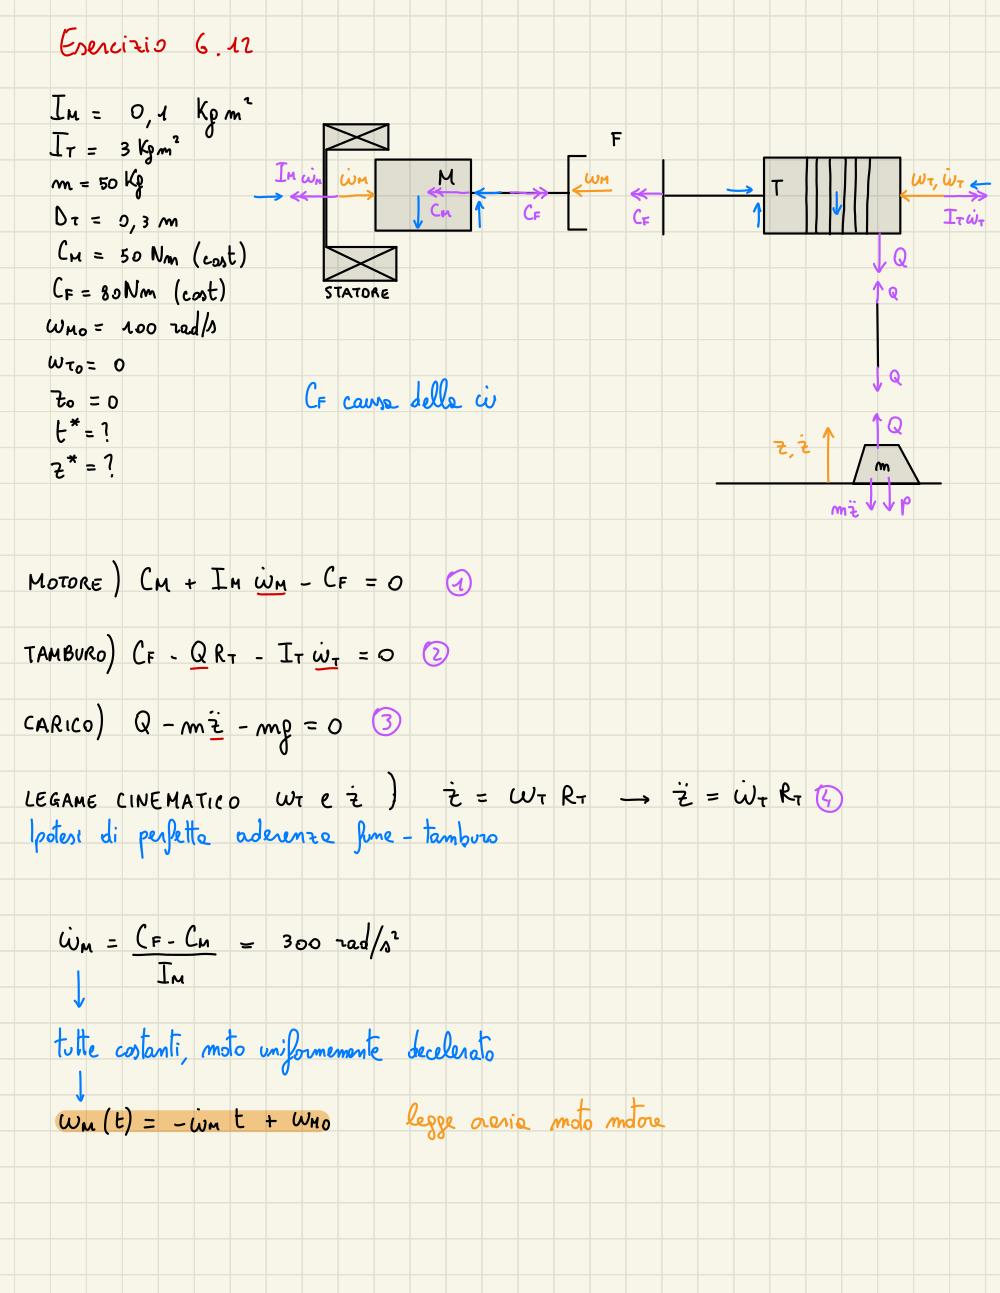 Esercizio 6.12
I_M = 0,1 Kgm²
I_T = 3 Kgm²
m = 50 Kg
D_T = 0,3 m
C_M = 50 Nm (cost)
C_F = 80 Nm (cost)
ω_M0 = 100 rad/s
ω_T0 = 0
z_0 = 0
t* = ?
z* = ?
I_M ω̇_M
ω̇_M
M
C_M
C_F
STATORE
F
ω_M
C_F
T
ω_T, ω̇_T
I_T ω̇_T
Q
Q
Q
Q
z, ż
m
mz̈
P
C_F causa della ω̇
MOTORE) C_M + I_M ω̇_M - C_F = 0 ①
TAMBURO) C_F - Q R_T - I_T ω̇_T = 0 ②
CARICO) Q - mz̈ - mg = 0 ③
LEGAME CINEMATICO ω_T e ż) ż = ω_T R_T → z̈ = ω̇_T R_T ④
Ipotesi di perfetta aderenza fune - tamburo
ω̇_M = (C_F - C_M) / I_M = 300 rad/s²
tutte costanti, moto uniformemente decelerato
ω_M (t) = -ω̇_M t + ω_M0 legge oraria moto motore